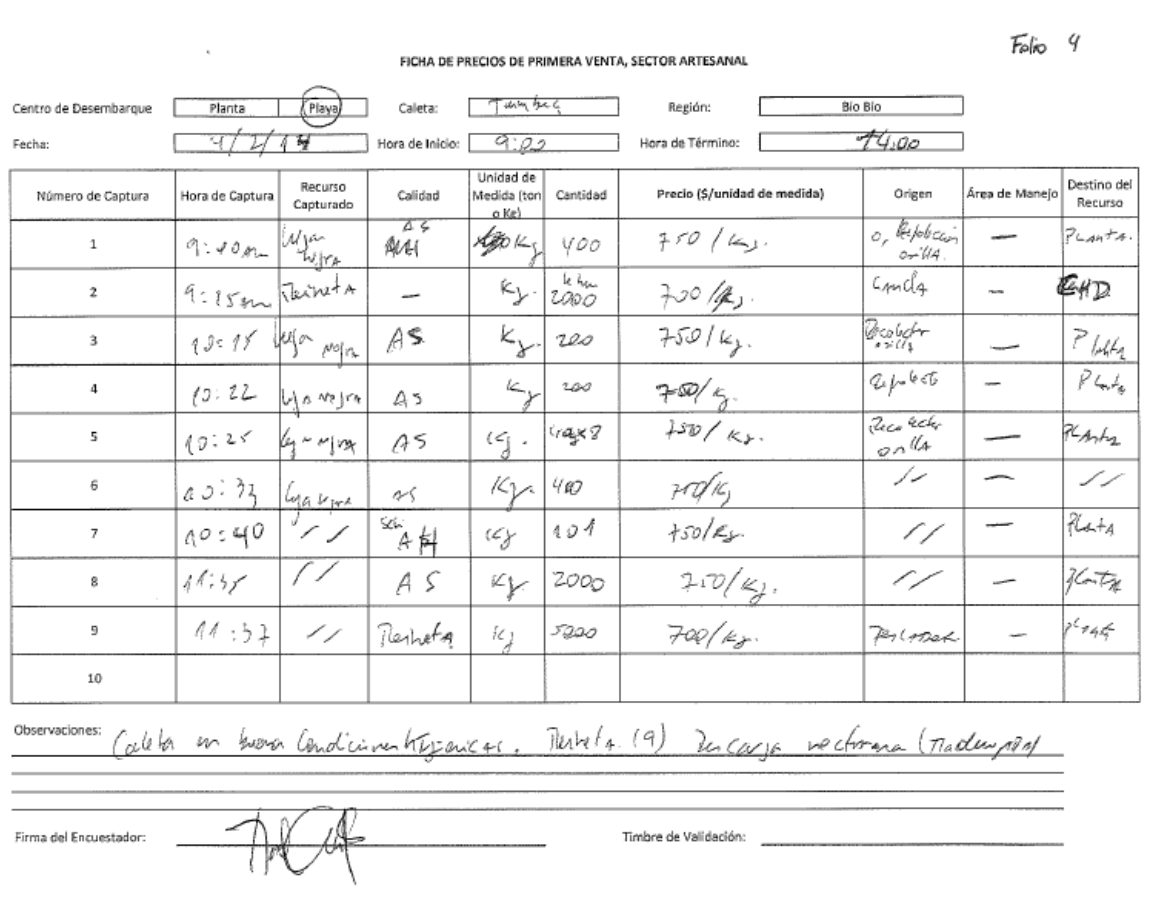 Folio 4
FICHA DE PRECIOS DE PRIMERA VENTA, SECTOR ARTESANAL
Centro de Desembarque Planta Playa Caleta: Tumbes Región: Bío Bío
Fecha: Hora de Inicio: 9:00 Hora de Término: 14:00
Número de Captura Hora de Captura Recurso Capturado Calidad Unidad de Medida (ton o Kg) Cantidad Precio ($/unidad de medida) Origen Área de Manejo Destino del Recurso
1 9:10am Luga Negra AS Kg 400 750/Kg. orilla. — Planta.
2 9:15am Reineta — Kg. 2000 700/Kg. —
3 10:15 Luga Negra AS Kg. 200 750/Kg. Recolector orilla — Planta
4 10:22 Luga negra AS Kg 200 750/Kg. — Planta
5 10:25 Luga negra AS Kg. 750/Kg. Recolector orilla — Planta
6 10:33 Luga negra AS Kg. 400 750/Kg // — //
7 10:40 // A Kg 101 750/Kg. // — Planta
8 11:35 // AS Kg. 2000 750/Kg. // — Planta
9 11:37 // Reineta Kg 5000 700/Kg. — Planta
10
Observaciones: Caleta en buena Condiciones Higienicas. Reineta (9) Descarga nocturna
Firma del Encuestador: Timbre de Validación: